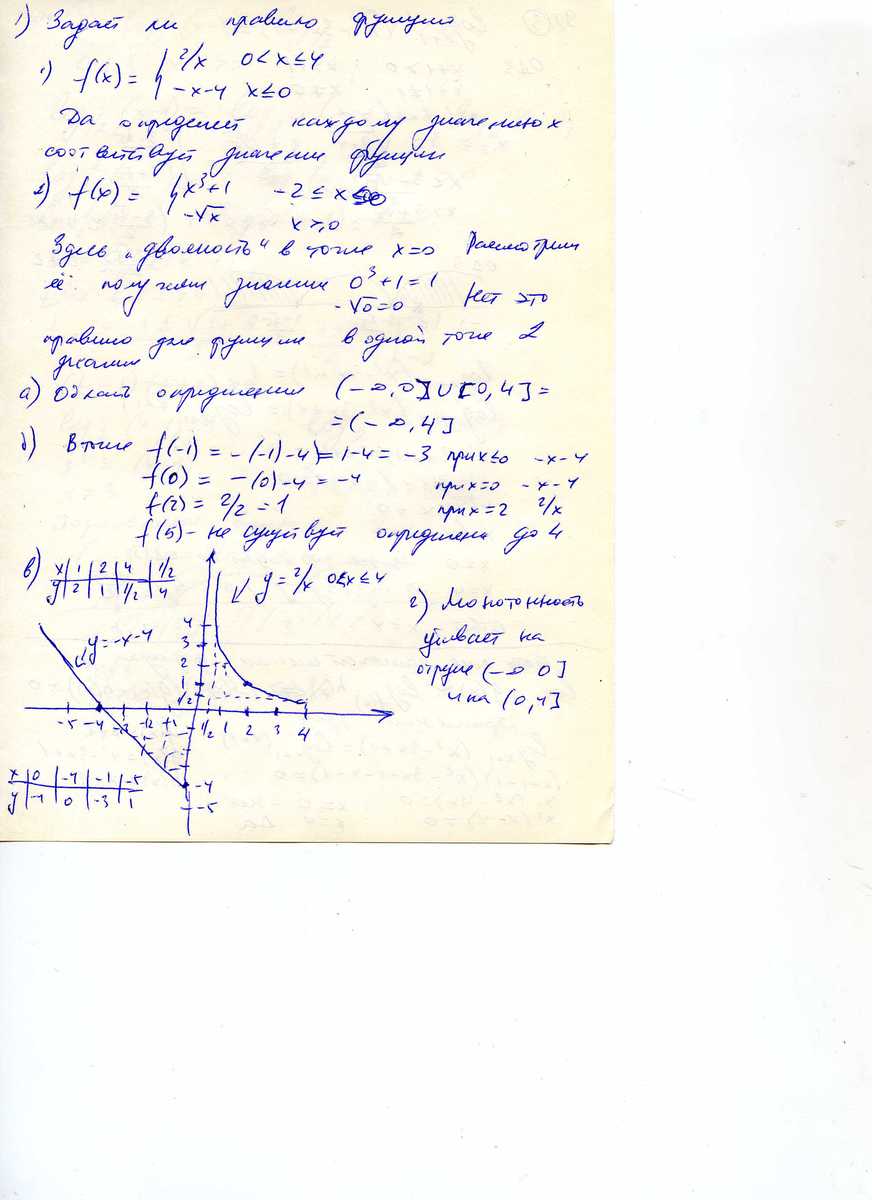 1) Задает ли правило функцию
1) f(x) = { 2/x 0<x≤4
-x-4 x≤0
Да определяет каждому значению x
соответствует значение функции
2) f(x) = { x³+1 -2≤x≤0
-√x x≥0
Здесь „двоякость" в точке x=0 Рассмотрим
её получаем значения 0³+1=1
-√0=0 Нет это
правило для функции в одной точке 2
а) Область определения (-∞,0]∪[0,4]=
=(-∞,4]
б) В точке f(-1) = -(-1)-4)=1-4=-3 при x≤0 -x-4
f(0) = -(0)-4=-4 при x=0 -x-4
f(2) = 2/2 = 1 при x=2 2/x
f(5) - не существует определена до 4
в) x 1 2 4 1/2
y 2 1 1/2 4
y=2/x 0<x≤4
y=-x-4
г) Монотонность
убывает на
отрезке (-∞ 0]
и на (0,4]
4
3
2
1
1/2
-5 -4 -3 -2 +1 1/2 1 2 3 4
-4
-5
x 0 -4 -1 -5
y -4 0 -3 1